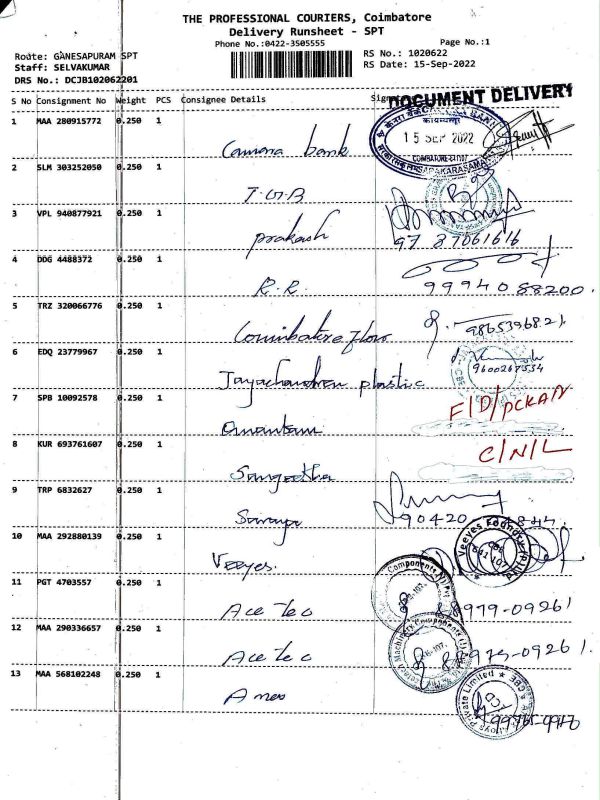 THE PROFESSIONAL COURIERS, Coimbatore
Delivery Runsheet - SPT
Phone No.:0422-3505555 Page No.:1
Route: GANESAPURAM SPT RS No.: 1020622
Staff: SELVAKUMAR RS Date: 15-Sep-2022
DRS No.: DCJB102062201
S No Consignment No Weight PCS Consignee Details
DOCUMENT DELIVERY
1 MAA 280915772 0.250 1
15 SEP 2022
COIMBATORE-641107
Canara bank
2 SLM 303252050 0.250 1
T.G.B
3 VPL 940877921 0.250 1
prakash 97 87061616
4 DDG 4488372 0.250 1
R.R. 99940 88200.
5 TRZ 320066776 0.250 1
Coimbatore flow 9865396821
6 EDQ 23779967 0.250 1
Jayachandran plastic 9600267534
7 SPB 10092578 0.250 1
F/D/PCKAN
8 KUR 693761607 0.250 1
C/N/L
Sangeetha
9 TRP 6832627 0.250 1
Saraya 90420
10 MAA 292880139 0.250 1
Veeyes Foundry
Veeyes.
11 PGT 4703557 0.250 1
Components
Ace tec 88979-09261
12 MAA 290336657 0.250 1
Machinery Components
Ace tec 88979-09261.
13 MAA 568102248 0.250 1
Private Limited
CBE